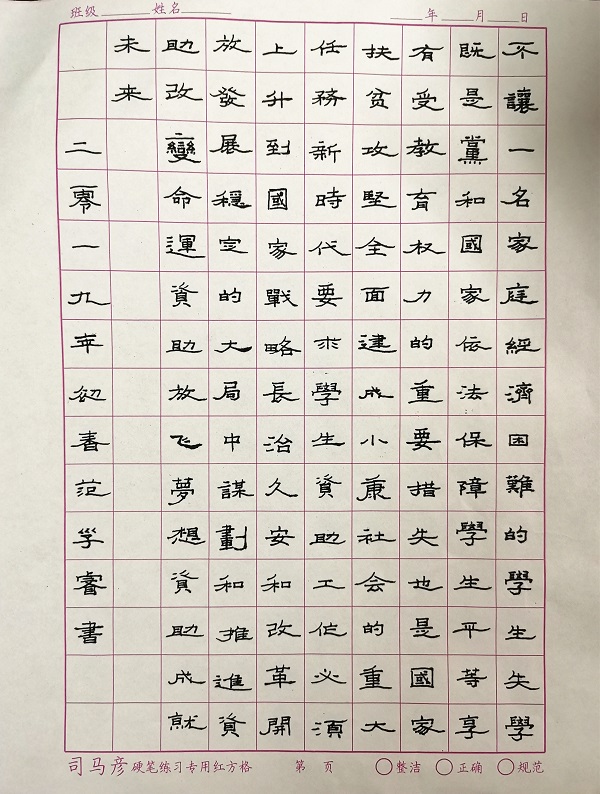 班级 姓名 年 月 日
不讓一名家庭經濟困難的學生失學
既是黨和國家依法保障學生平等享
有受教育权力的重要措失也是國家
扶貧攻堅全面建成小康社会的重大
任務新時代要求學生資助工作必須
上升到國家戰略長治久安和改革開
放發展穩定的大局中謀劃和推進資
助改變命運資助放飞夢想資助成就
未来
二零一九年書范学睿書
司马彦硬笔练习专用红方格 第 页 整洁 正确 规范